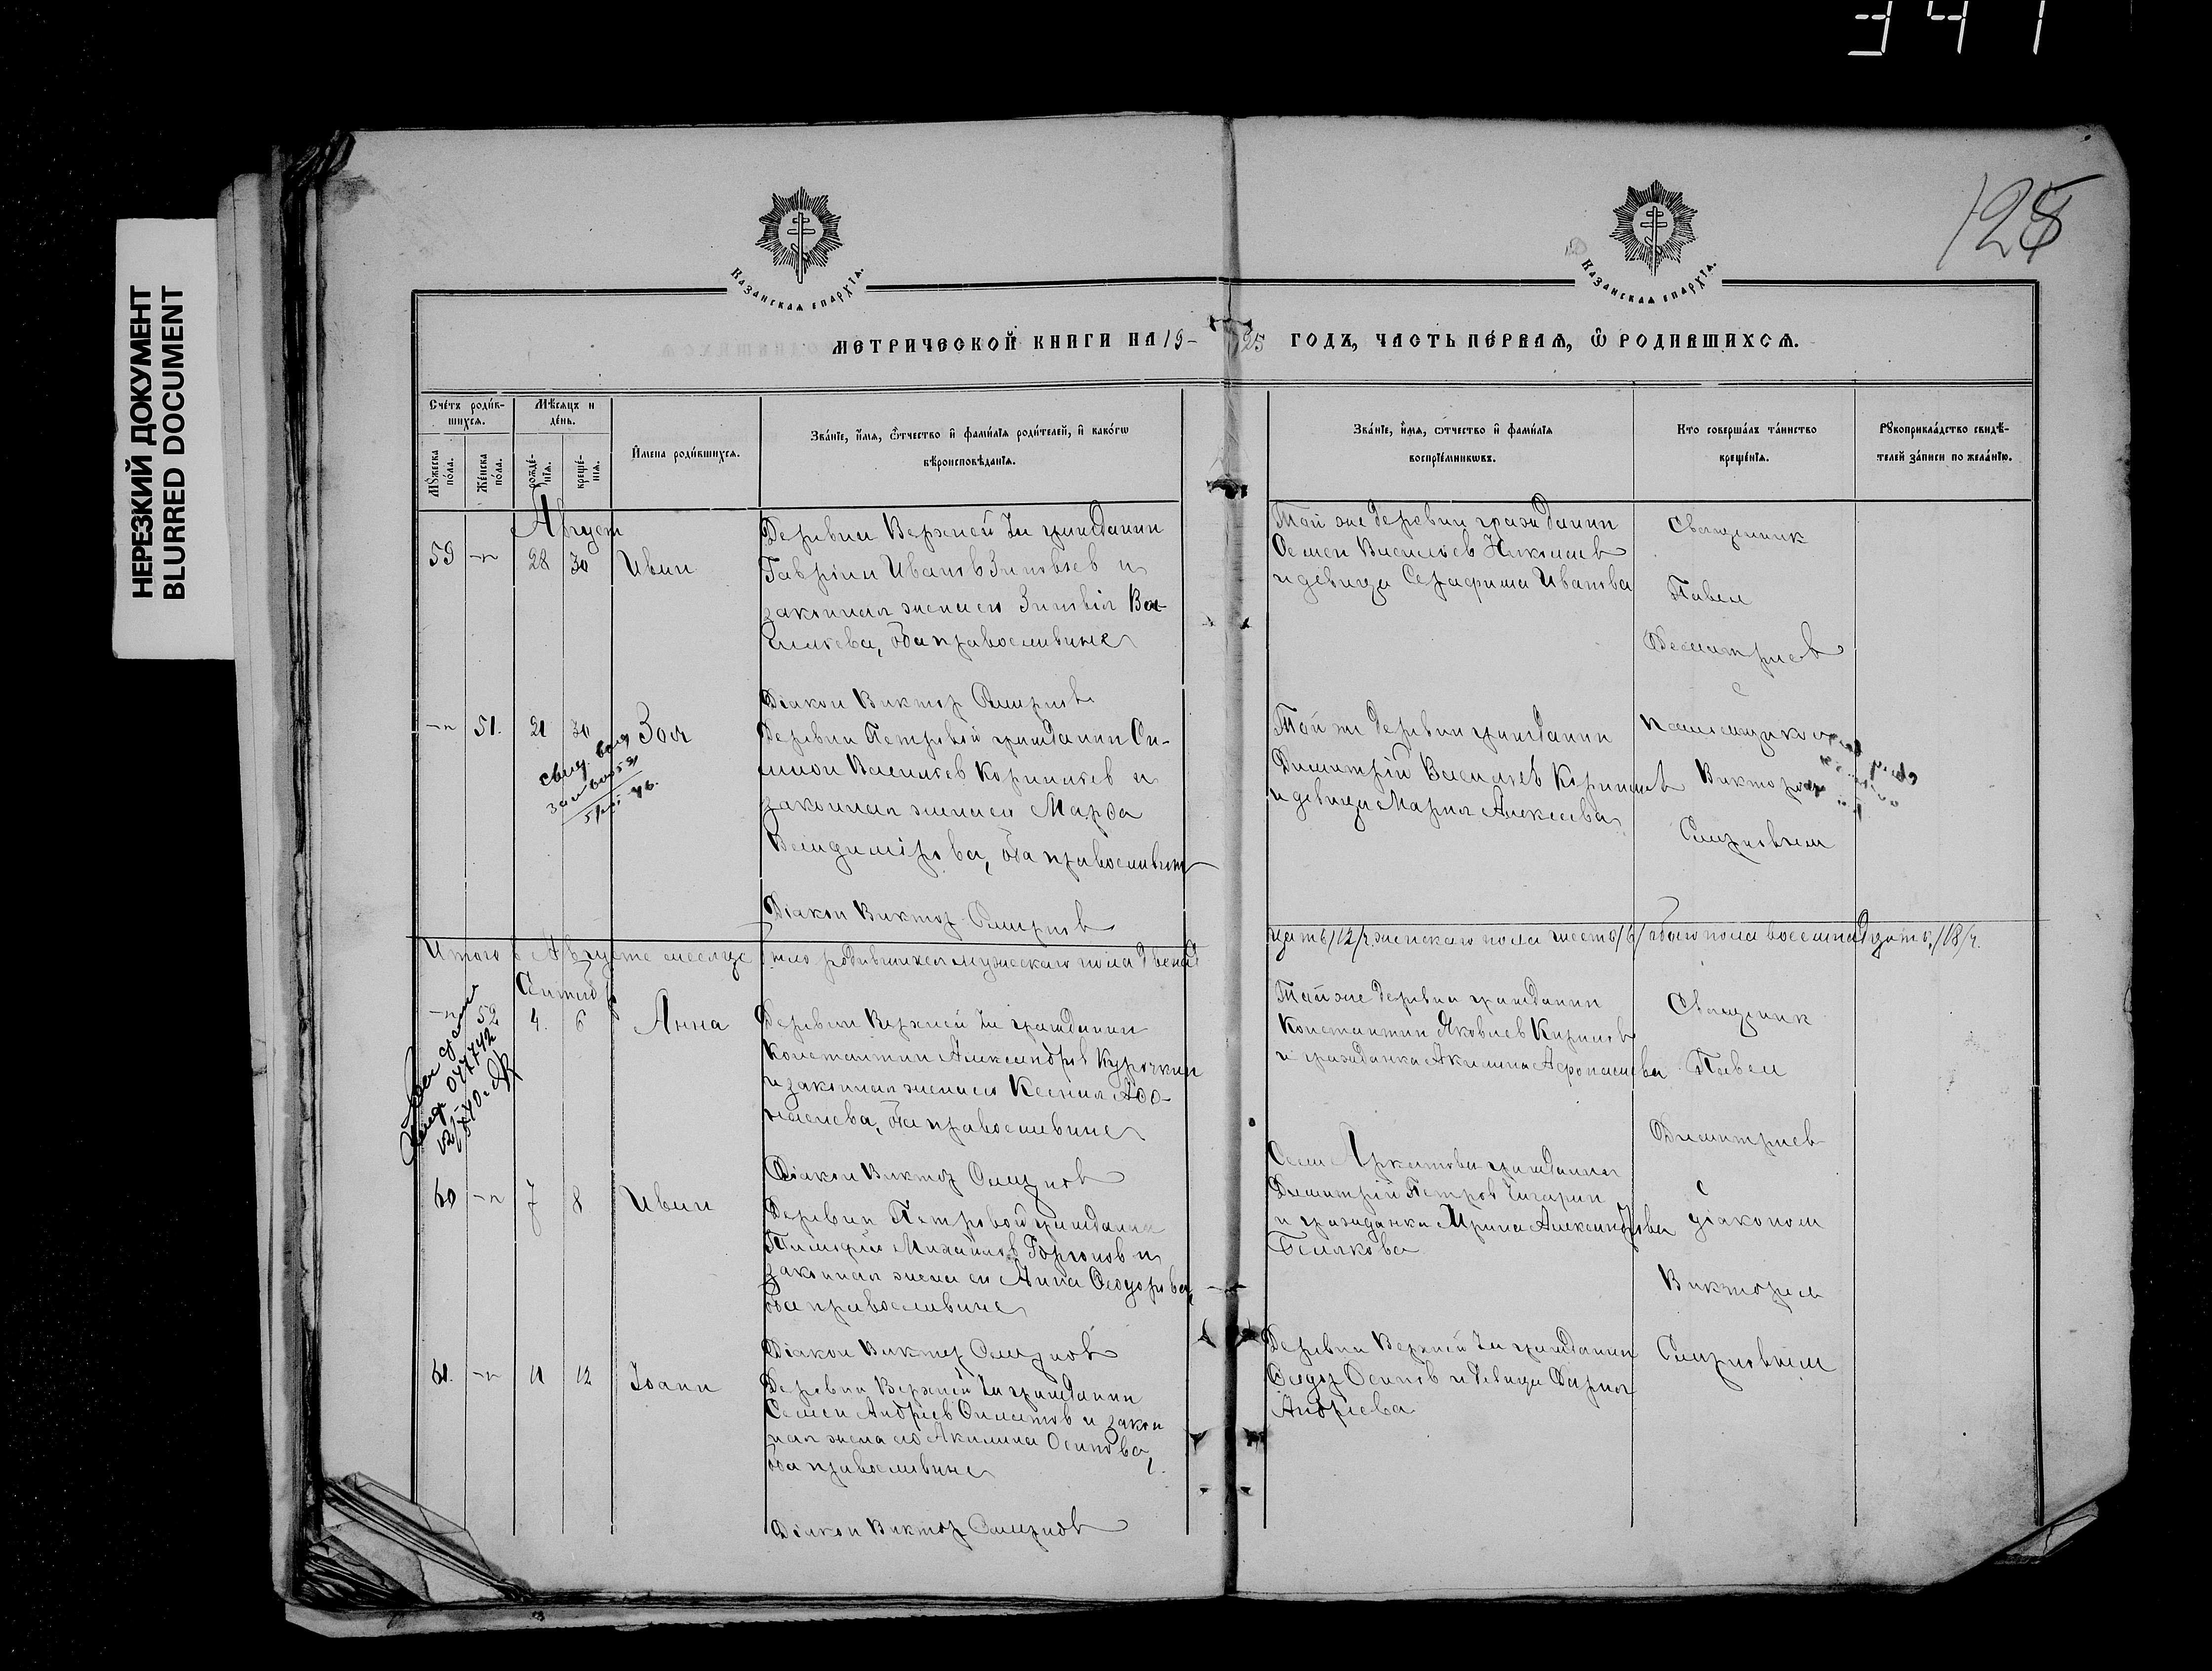 341
НЕРЕЗКИЙ ДОКУМЕНТ
BLURRED DOCUMENT
128
КАЗАНСКАЯ ЕПАРХІЯ.
КАЗАНСКАЯ ЕПАРХІЯ.
МЕТРИЧЕСКОЙ КНИГИ НА 19-25 ГОДЪ, ЧАСТЬ ПЕРВАЯ, Ѡ РОДИВШИХСЯ.
Счетъ родив-
шихся.
Мѣсяцъ и
день.
Мужеска
пола.
Женска
пола.
рожде-
нія.
креще-
нія.
Имена родившихся.
Званіе, имя, ѿчество и фамилія родителей, и какогѡ
вѣроисповѣданія.
Званіе, имя, ѡтчество и фамилія
воспріемникѡвъ.
Кто совершалъ таинство
крещенія.
Рукоприкладство свидѣ-
телей записи по желанію.
Август
59 -"- 28 30 Иван
Деревни Верхней гражданин
Гавріил Иванов Зиновьев и
законная жена его Зиновія Ва-
сильева, оба православные
Діакон Виктор Смирнов
Той же деревни гражданин
Семен Васильев Николаев
и девица Серафима Иванова
Священник
Павел
Димитриев
с
-"- 51. 21 30 Зоя
Деревни Петровой гражданин Си-
меон Васильев Корнилов и
законная жена его Марфа
Владимірова, оба православные
Діакон Виктор Смирнов
Той же деревни гражданин
Димитрій Васильев Корнилов
и девица Мария Алексеева
Виктором
Смирновым
Итого в Августе месяце было родившихся мужескаго пола двенад
цать/12/ч. женскаго пола шесть/6/ обоего пола восемнадцать/18/ч.
Сентябрь
-"- 52 4. 6 Анна
Деревни Верхней гражданин
Константин Александров Курочкин
и законная жена его Ксения Афо-
насиева, оба православные
Діакон Виктор Смирнов
Той же деревни гражданин
Константин Яковлев Кирилов
и гражданка Акилина Афонасиева
Священник
Павел
Димитриев
с
діаконом
Виктором
Смирновым
60 -"- 7 8 Иван
Деревни Петровой гражданин
Тимофей Михайлов Горшов и
законная жена его Анна Феодорова,
оба православные
Діакон Виктор Смирнов
Села гражданин
Димитрій Петров
и гражданка Ирина Александрова
Белякова
61. -"- 11 12 Іоанн
Деревни Верхней гражданин
Семен Андреев Филатов и закон
ная жена его Акилина Осипова,
оба православные
Діакон Виктор Смирнов
Деревни Верхней гражданин
Феодор Осипов и девица Дария
Андреева